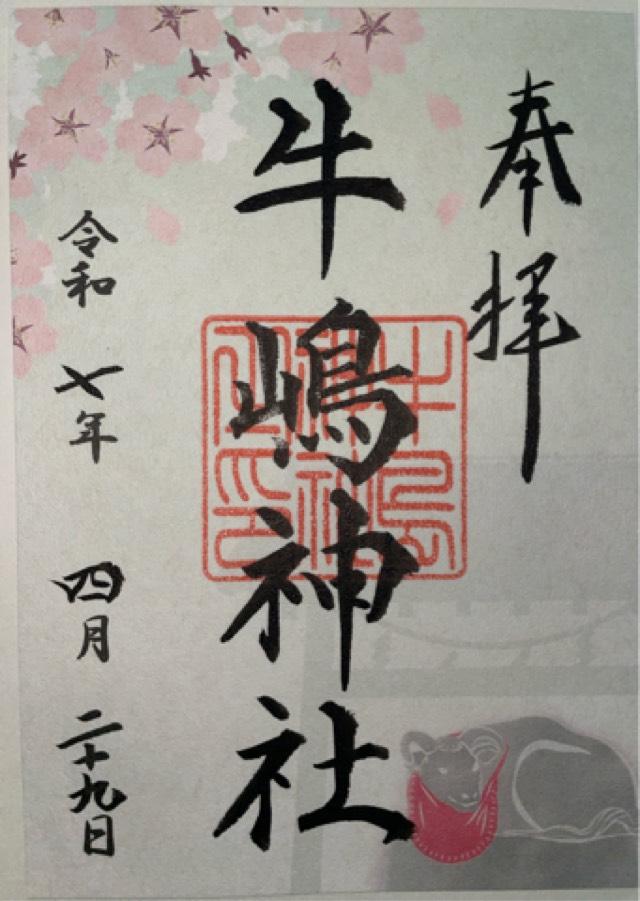 奉拝
牛嶋神社
令和 七年 四月 二十九日